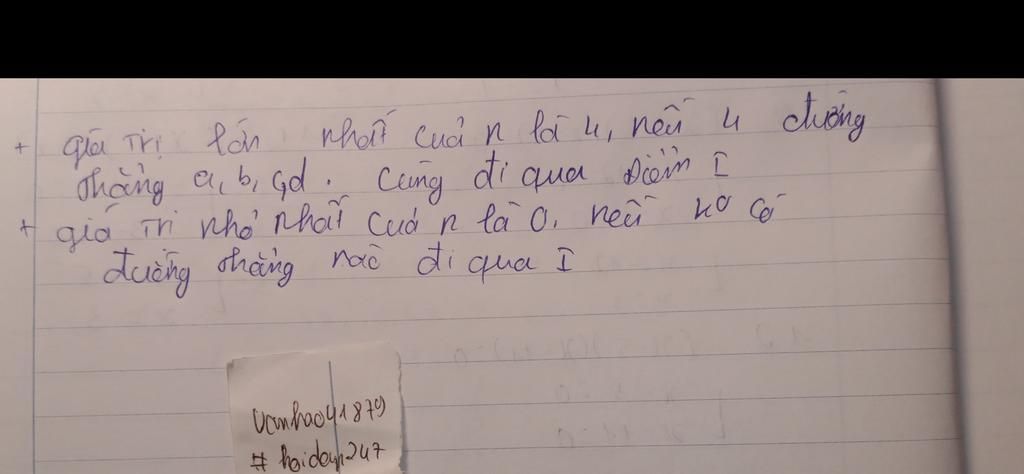 + giá trị lớn nhất của n là 4, nếu 4 đường
thẳng a, b, c, d. Cùng đi qua điểm I
+ giá trị nhỏ nhất của n là 0, nếu ko có
đường thẳng nào đi qua I
vanhao41879
# hoidap247